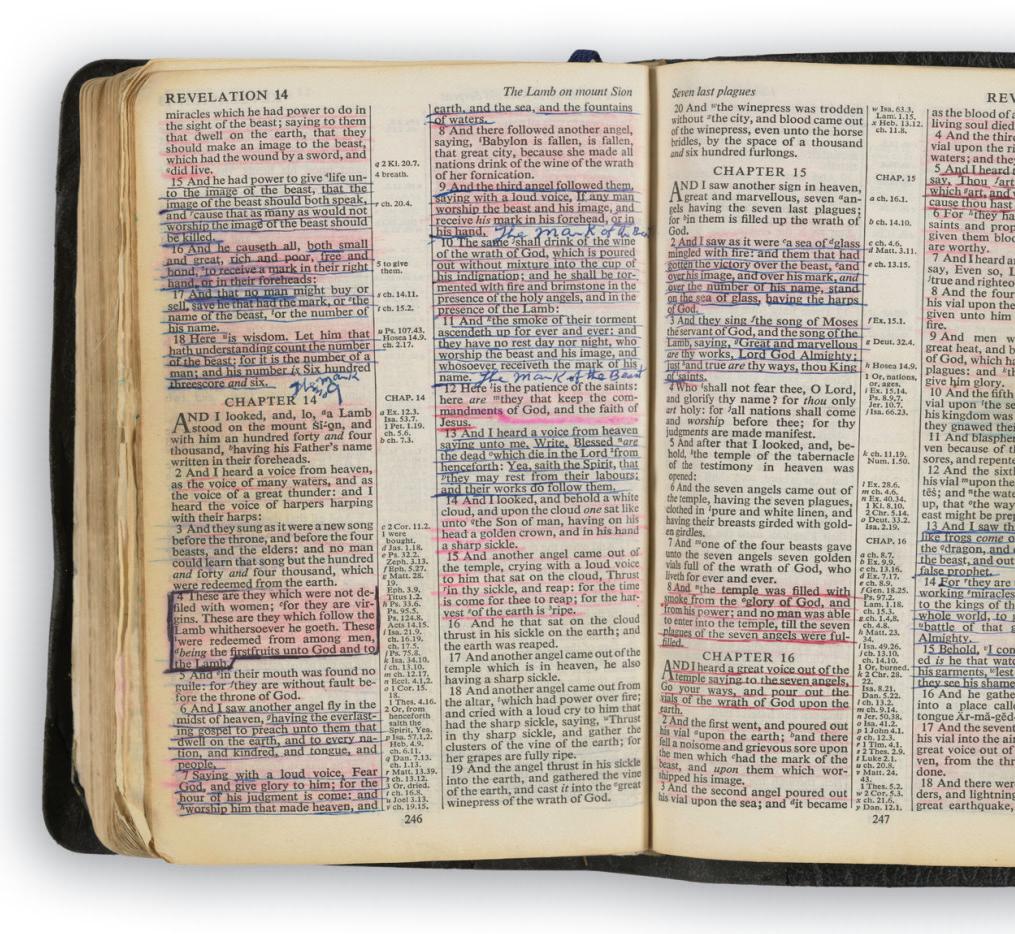 REVELATION 14
miracles which he had power to do in
the sight of the beast; saying to them
that dwell on the earth, that they
should make an image to the beast,
which had the wound by a sword, and
q did live.
15 And he had power to give 4 life un-
to the image of the beast, that the
image of the beast should both speak,
and r cause that as many as would not
worship the image of the beast should
be killed.
16 And he causeth all, both small
and great, rich and poor, free and
bond, 5 to receive a mark in their right
hand, or in their foreheads:
17 And that no man might buy or
sell, save he that had the mark, or s the
name of the beast, t or the number of
his name.
18 Here u is wisdom. Let him that
hath understanding count the number
of the beast: for it is the number of a
man; and his number is Six hundred
threescore and six.
CHAPTER 14
AND I looked, and, lo, a a Lamb
stood on the mount Sī'-on, and
with him an hundred forty and four
thousand, b having his Father's name
written in their foreheads.
2 And I heard a voice from heaven,
as the voice of many waters, and as
the voice of a great thunder: and I
heard the voice of harpers harping
with their harps:
3 And they sung as it were a new song
before the throne, and before the four
beasts, and the elders: and no man
could learn that song but the hundred
and forty and four thousand, which
were redeemed from the earth.
4 These are they which were not de-
filed with women; c for they are vir-
gins. These are they which follow the
Lamb whithersoever he goeth. These
1 were redeemed from among men,
d being the firstfruits unto God and to
the Lamb.
5 And e in their mouth was found no
guile: for f they are without fault be-
fore the throne of God.
6 And I saw another angel fly in the
midst of heaven, g having the everlast-
ing gospel to preach unto them that
dwell on the earth, and to every na-
tion, and kindred, and tongue, and
people,
7 Saying with a loud voice, Fear
God, and give glory to him; for the
hour of his judgment is come: and
h worship him that made heaven, and
q 2 Ki. 20.7.
4 breath.
r ch. 20.4.
5 to give
them.
s ch. 14.11.
t ch. 15.2.
u Ps. 107.43.
Hosea 14.9.
ch. 2.17.
CHAP. 14
a Ex. 12.3.
Isa. 53.7.
1 Pet. 1.19.
ch. 5.6.
b ch. 7.3.
c 2 Cor. 11.2.
1 were
bought.
d Jas. 1.18.
e Ps. 32.2.
Zeph. 3.13.
f Eph. 5.27.
g Matt. 28.
19.
Eph. 3.9.
Titus 1.2.
h Ps. 33.6.
Ps. 95.5.
Ps. 124.8.
Acts 14.15.
i Isa. 21.9.
ch. 16.19.
ch. 17.5.
j Ps. 75.8.
k Isa. 34.10.
l ch. 13.10.
m ch. 12.17.
n Eccl. 4.1,2.
o 1 Cor. 15.
18.
1 Thes. 4.16.
2 Or, from
henceforth
saith the
Spirit, Yea.
p Isa. 57.1,2.
Heb. 4.9.
ch. 6.11.
q Dan. 7.13.
ch. 1.13.
r Matt. 13.39.
s ch. 13.12.
3 Or, dried.
t ch. 16.8.
u Joel 3.13.
v ch. 19.15.
The Lamb on mount Sion
earth, and the sea, and the fountains
of waters.
8 And there followed another angel,
saying, i Babylon is fallen, is fallen,
that great city, because she made all
nations drink of the wine of the wrath
of her fornication.
9 And the third angel followed them,
saying with a loud voice, If any man
worship the beast and his image, and
receive his mark in his forehead, or in
his hand, The mark of the Beast
10 The same j shall drink of the wine
of the wrath of God, which is poured
out without mixture into the cup of
his indignation; and he shall be tor-
mented with fire and brimstone in the
presence of the holy angels, and in the
presence of the Lamb:
11 And k the smoke of their torment
ascendeth up for ever and ever: and
they have no rest day nor night, who
worship the beast and his image, and
whosoever receiveth the mark of his
name. The Mark of the Beast
12 Here l is the patience of the saints:
here are m they that keep the com-
mandments of God, and the faith of
Jesus.
13 And I heard a voice from heaven
saying unto me, Write, Blessed n are
the dead o which die in the Lord 2 from
henceforth: Yea, saith the Spirit, that
p they may rest from their labours;
and their works do follow them.
14 And I looked, and behold a white
cloud, and upon the cloud one sat like
unto q the Son of man, having on his
head a golden crown, and in his hand
a sharp sickle.
15 And another angel came out of
the temple, crying with a loud voice
to him that sat on the cloud, Thrust
in thy sickle, and reap: for the time
is come for thee to reap; for the har-
vest r of the earth is 3 ripe.
16 And he that sat on the cloud
thrust in his sickle on the earth; and
the earth was reaped.
17 And another angel came out of the
temple which is in heaven, he also
having a sharp sickle.
18 And another angel came out from
the altar, t which had power over fire;
and cried with a loud cry to him that
had the sharp sickle, saying, u Thrust
in thy sharp sickle, and gather the
clusters of the vine of the earth; for
her grapes are fully ripe.
19 And the angel thrust in his sickle
into the earth, and gathered the vine
of the earth, and cast it into the v great
winepress of the wrath of God.
246
Seven last plagues
20 And w the winepress was trodden
without x the city, and blood came out
of the winepress, even unto the horse
bridles, by the space of a thousand
and six hundred furlongs.
CHAPTER 15
AND I saw another sign in heaven,
great and marvellous, seven a an-
gels having the seven last plagues;
for b in them is filled up the wrath of
God.
2 And I saw as it were c a sea of d glass
mingled with fire: and them that had
gotten the victory over the beast, e and
over his image, and over his mark, and
over the number of his name, stand
on the sea of glass, having the harps
of God.
3 And they sing f the song of Moses
the servant of God, and the song of the
Lamb, saying, g Great and marvellous
are thy works, Lord God Almighty;
just h and true are thy ways, thou King
of 1 saints.
4 Who i shall not fear thee, O Lord,
and glorify thy name? for thou only
art holy: for j all nations shall come
and worship before thee; for thy
judgments are made manifest.
5 And after that I looked, and, be-
hold, k the temple of the tabernacle
of the testimony in heaven was
opened:
6 And the seven angels came out of
the temple, having the seven plagues,
clothed in l pure and white linen, and
having their breasts girded with gold-
en girdles.
7 And m one of the four beasts gave
unto the seven angels seven golden
vials full of the wrath of God, who
liveth for ever and ever.
8 And n the temple was filled with
smoke from the o glory of God, and
from his power; and no man was able
to enter into the temple, till the seven
plagues of the seven angels were ful-
filled.
CHAPTER 16
AND I heard a great voice out of the
temple saying to the seven angels,
Go your ways, and pour out the
vials of the wrath of God upon the
earth.
2 And the first went, and poured out
his vial a upon the earth; b and there
fell a noisome and grievous sore upon
the men c which had the mark of the
beast, and upon them which wor-
shipped his image.
3 And the second angel poured out
his vial upon the sea; and d it became
w Isa. 63.3.
Lam. 1.15.
x Heb. 13.12.
ch. 11.8.
CHAP. 15
a ch. 16.1.
b ch. 14.10.
c ch. 4.6.
d Matt. 3.11.
e ch. 13.15.
f Ex. 15.1.
g Deut. 32.4.
h Hosea 14.9.
1 Or, nations,
or, ages.
i Ex. 15.14.
Ps. 8.9,7.
Jer. 10.7.
j Isa. 66.23.
k ch. 11.19.
Num. 1.50.
l Ex. 28.6.
m ch. 4.6.
n Ex. 40.34.
1 Ki. 8.10.
2 Chr. 5.14.
o Deut. 33.2.
Isa. 2.19.
CHAP. 16
a ch. 8.7.
b Ex. 9.9.
c ch. 13.16.
d Ex. 7.17.
e ch. 8.9.
f Gen. 18.25.
Ps. 97.2.
Lam. 1.18.
ch. 15.3.
g ch. 1.4,8.
ch. 4.8.
h Matt. 23.
34.
i Isa. 49.26.
j ch. 13.10.
ch. 14.10.
1 Or, burned.
k 2 Chr. 28.
22.
Isa. 8.21.
Dan. 5.22.
l ch. 13.2.
m ch. 9.14.
n Jer. 50.38.
o Isa. 41.2.
p 1 John 4.1.
q ch. 12.3.
r 1 Tim. 4.1.
s 2 Thes. 2.9.
t Luke 2.1.
u ch. 20.8.
v Matt. 24.
43.
1 Thes. 5.2.
w 2 Cor. 5.3.
x ch. 21.6.
y Dan. 12.1.
247
REV
as the blood of a
living soul died
4 And the third
vial upon the ri
waters; and they
5 And I heard
say, Thou f art
which g art, and
cause thou hast
6 For h they ha
saints and proph
given them bloo
are worthy.
7 And I heard
say, Even so, L
j true and righteo
8 And the four
his vial upon the
given unto him
fire.
9 And men w
great heat, and b
of God, which ha
plagues: and k th
give him glory.
10 And the fifth
vial upon l the se
his kingdom was
they gnawed thei
11 And blasphem
ven because of th
sores, and repente
12 And the sixth
his vial m upon the
tēs; and n the wate
up, that o the way
east might be prep
13 And I saw th
like frogs come o
the q dragon, and o
the beast, and out
false prophet.
14 For r they are
working s miracles
to the kings of th
whole world, to g
u battle of that g
Almighty.
15 Behold, v I con
ed is he that watc
his garments, w lest
they see his shame
16 And he gath
into a place calle
tongue Är-mā-gĕd-
17 And the seven
his vial into the ai
great voice out of
ven, from the thr
done.
18 And there were
ders, and lightning
great earthquake,